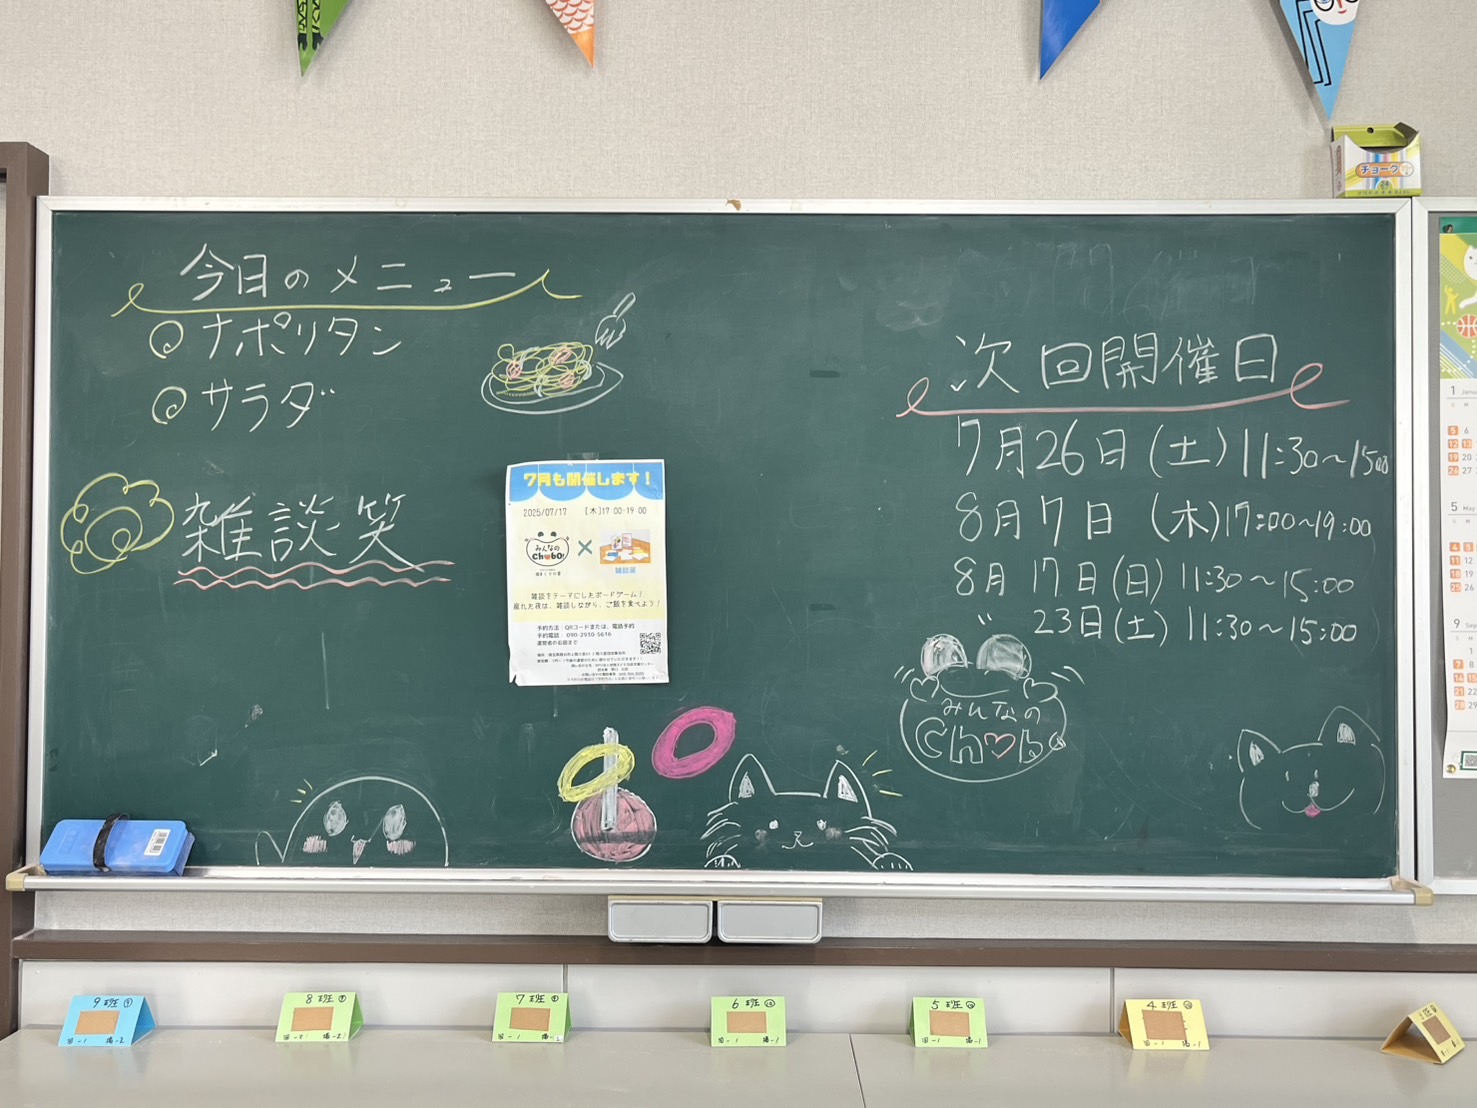 今日のメニュー
◎ナポリタン
◎サラダ
雑談笑
7月も開催します!
2025/07/17 [木]17:00-19:00
みんなの
Chobo!
×
雑談笑
雑談をテーマにしたボードゲーム!
疲れた夜は、雑談しながら、ご飯を食べよう!
予約方法:QRコードまたは、電話予約
運営者の石田まで
次回開催日
7月26日(土)11:30~15:00
8月7日(木)17:00~19:00
8月17日(日)11:30~15:00
〃23日(土)11:30~15:00
みんなの
Chobo
チョーク
1
5 May
9
9班
8班
7班
6班
5班
4班